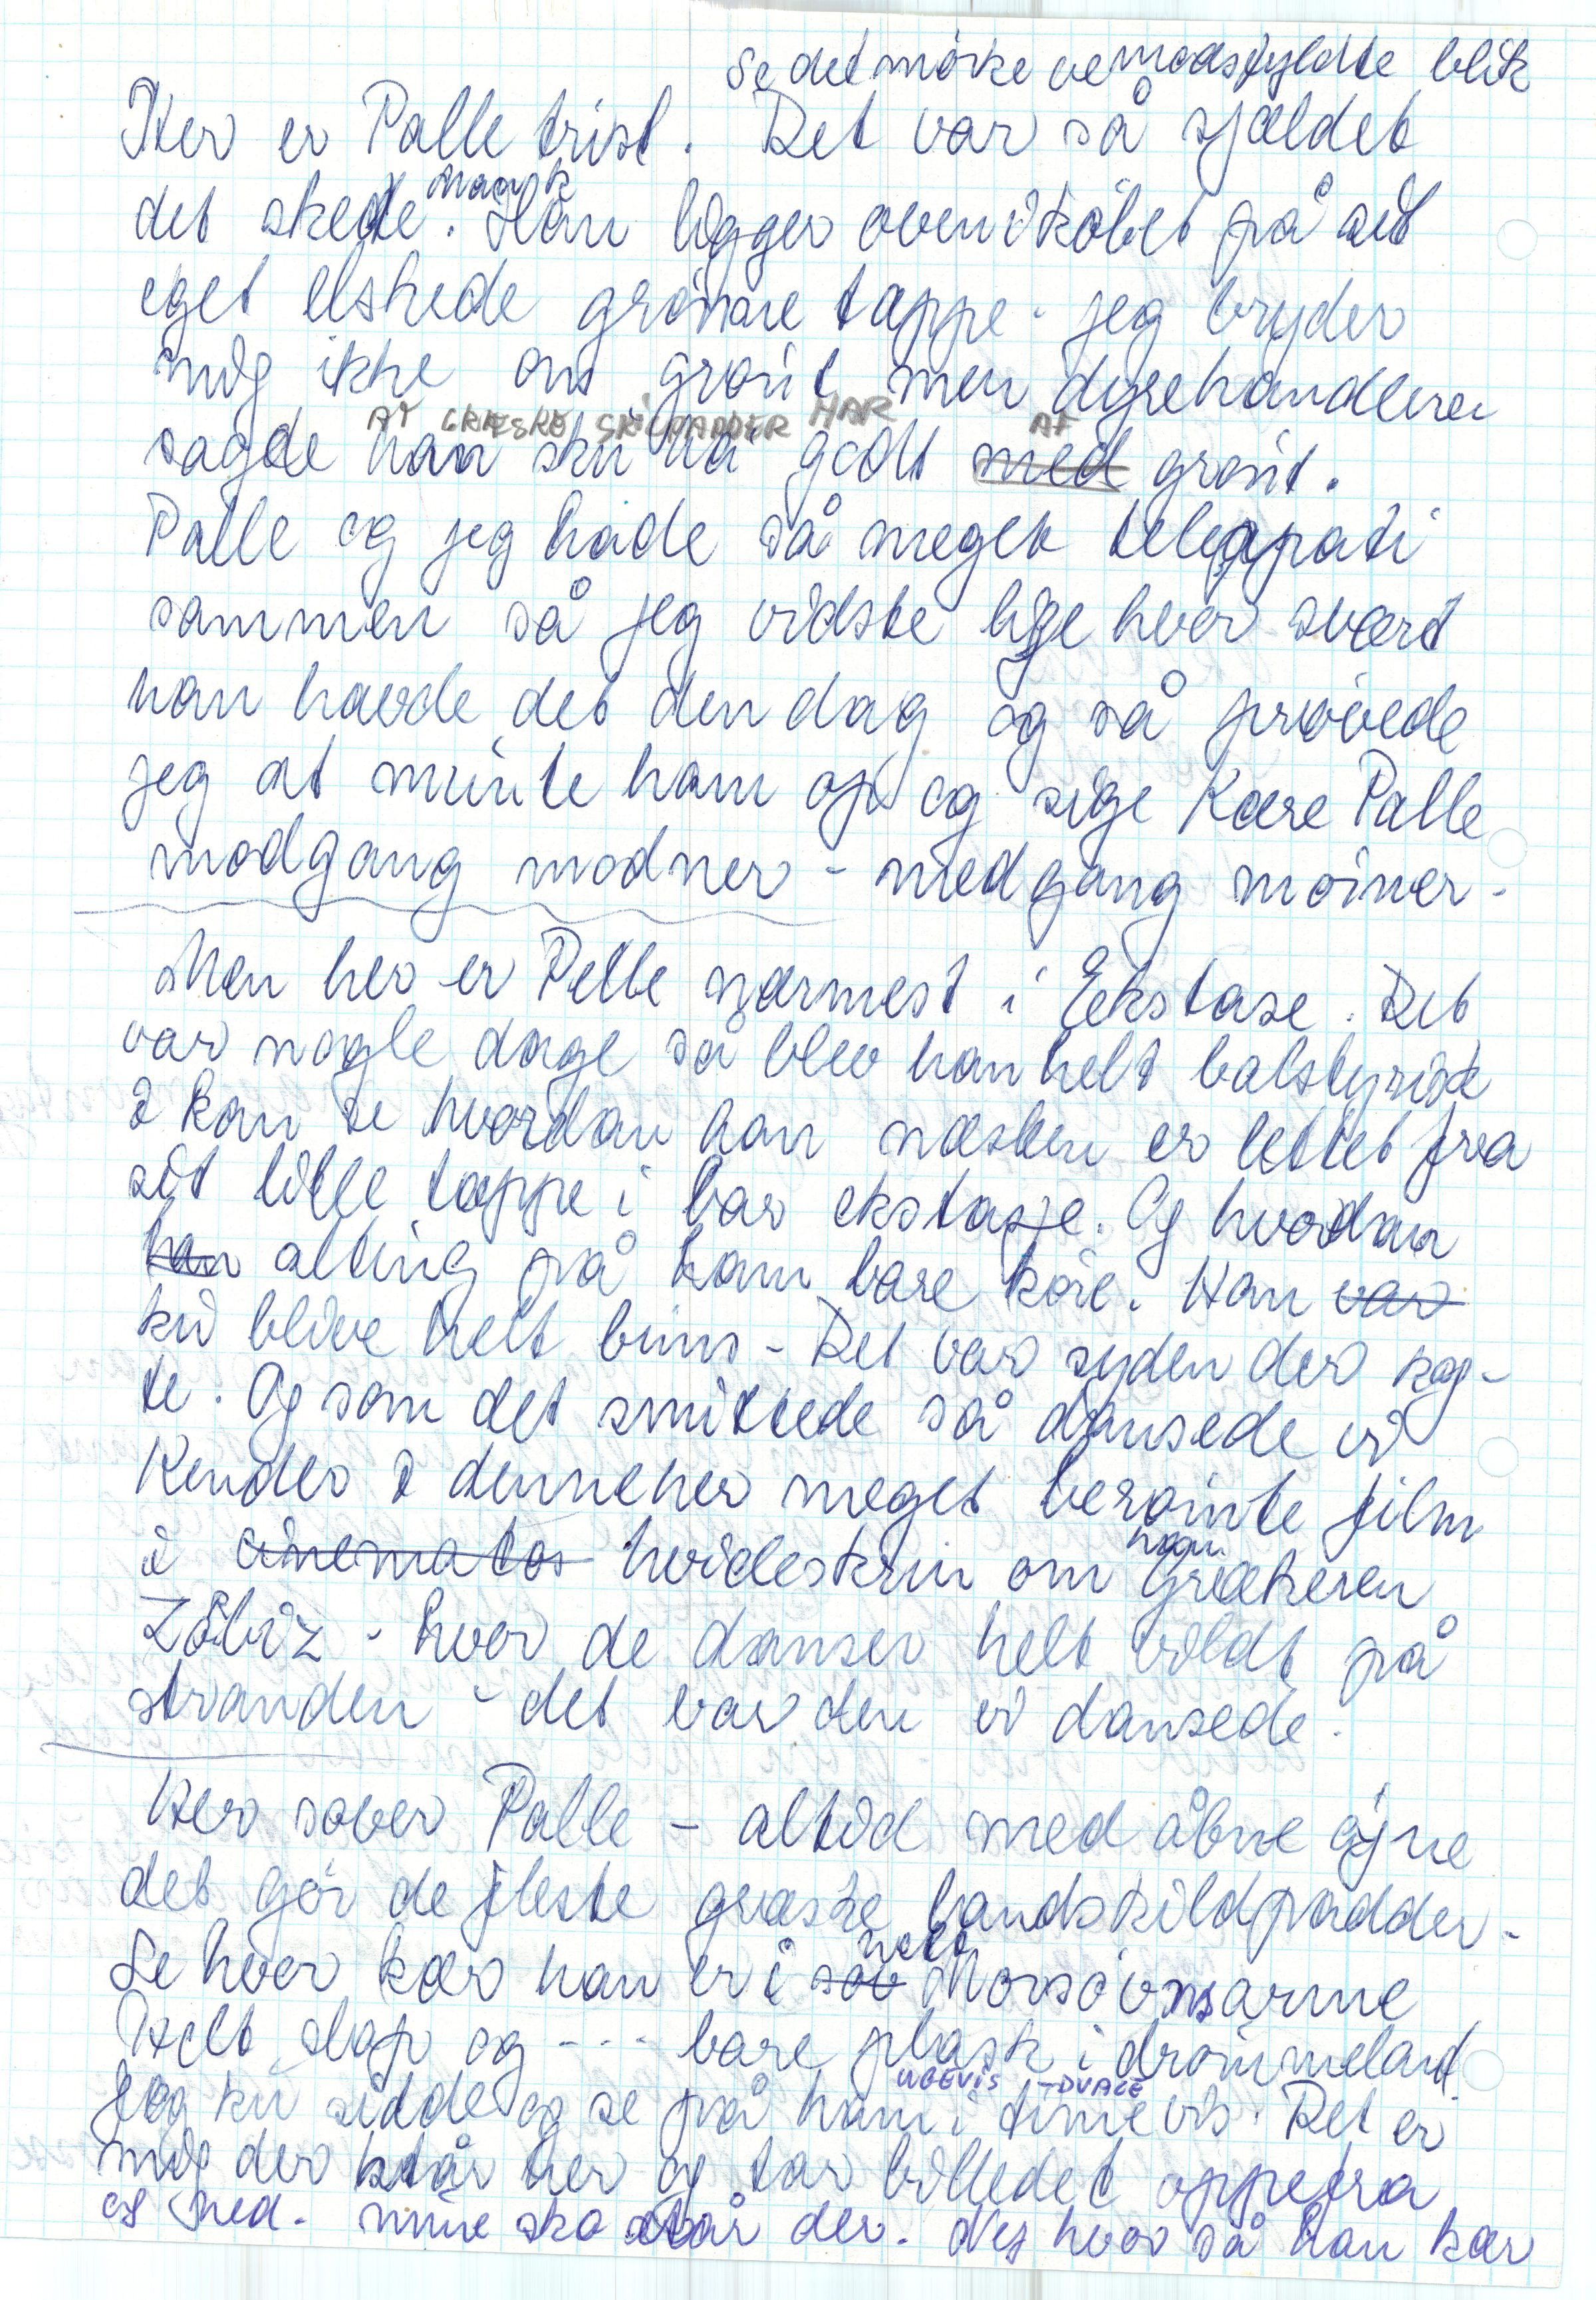 Se det mörke vemodsfyldte blik
Her er Palle trist. Det var så sjældet
det skete nonk. Han ligger ovenikøbet på sit
eget elskede grönne tæppe - jeg bryder
mig ikke om grönt men dyrehandleren
AT GRÆSKE SKILPADDER HAR AF
sagde han sku ha' godt med grönt.
Palle og jeg hade så meget telepati
sammen så jeg vidste lige hvor svært
han havde det den dag og så prövede
jeg at munte ham op og sige Kære Palle
modgang modner - medgang möner -
Men her er Palle nærmest i Ekstase. Det
var nogle dage så blev han helt balstyrisk
I kan se hvordan han næsten er lettet fra
sit lille tæppe i bar ekstase. Og hvordan
han alting på ham bare köre. Han var
ku blive helt bims - Det var syden der kog-
te. Og som det smittede så dansede vi
Kender I denneher meget berömte film
i cinematos hvideskrin om ham grækeren
Zöbiz - hvor de danser helt vildt på
stranden - det var den vi dansede.
Her sover Palle - altid med åbne öjne
det gör de fleste græske landskildpadder -
Se hvor kær han er i söv helt Morsövnsarme
Helt slap og --- bare plask i drömmeland.
UBEVIS -DVALE
Jeg ku sidde og se på ham i timevis. Det er
mig der står her og tar billedet oppefra
og ned. mine sko står der. Nej hvor så han kær